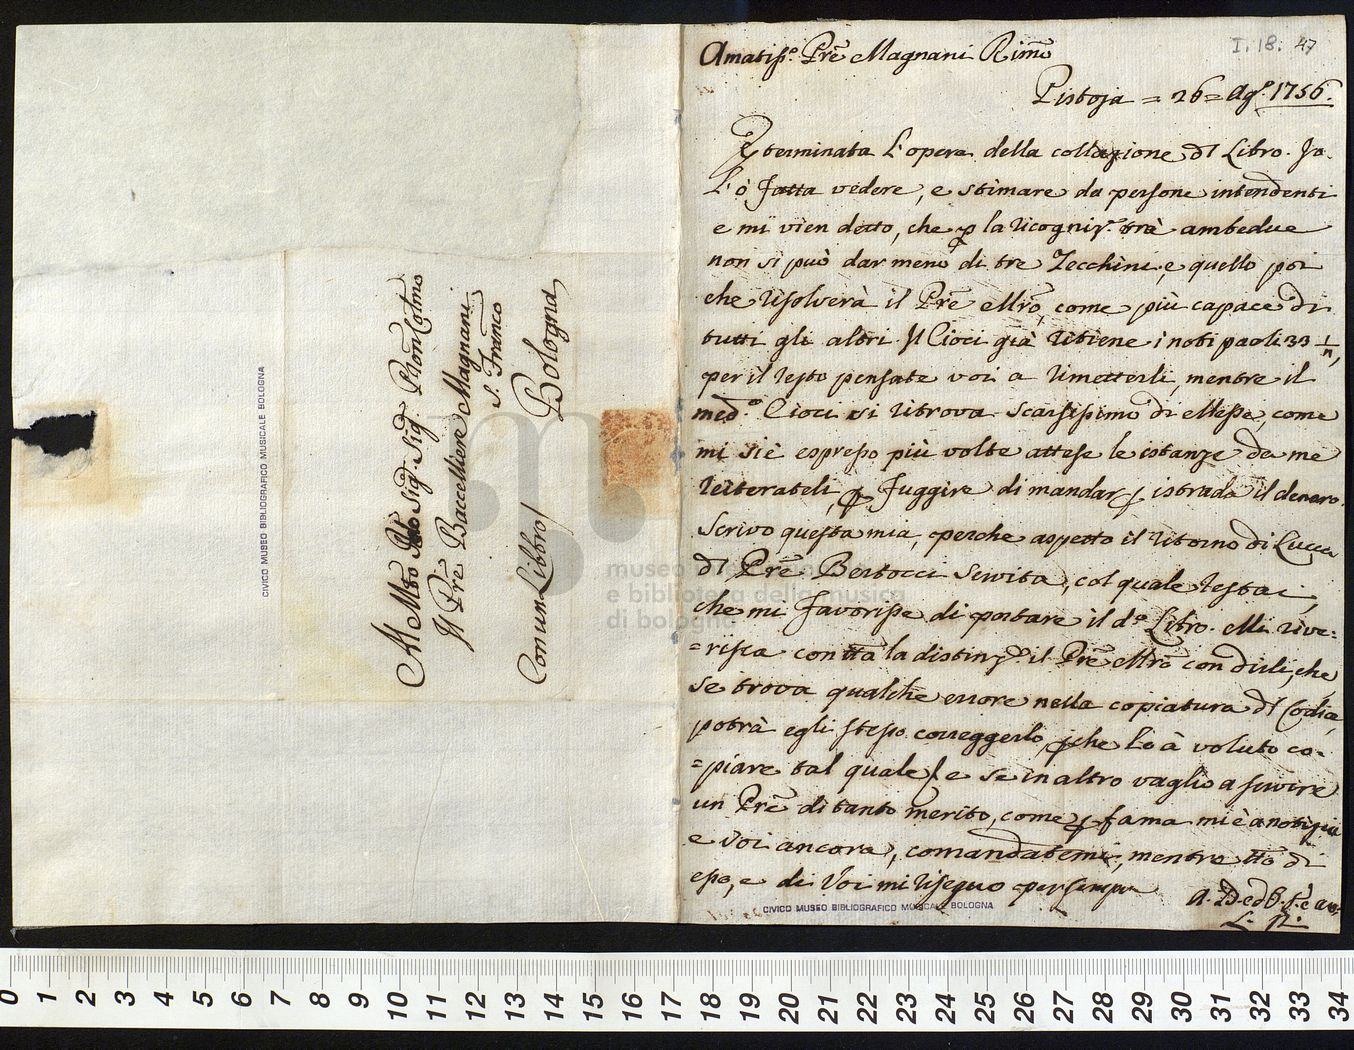 I. 18: 47
Amatiss.o Prē Magnani Rimō
Pistoja = 26 = Ag.o 1756.
È terminata l'opera della collazione dl Libro. Io
l'ò fatta vedere, e stimare da persone intendenti
e mi vien detto, che p la ricogniz.e trà ambedue
non si può dar meno di tre Zecchini, e quello poi
che risolverà il Prē Mrō, come più capace di
tutti gli altri Il Cioci già ritiene i noti paoli 33
per il resto pensate voi a rimetterli, mentre il
med.o Cioci si ritrova scarsissimo di Messe, come
mi si è espresso più volte attese le istanze da me
reiterateli, p fuggire di mandar p istrada il denaro.
Scrivo questa mia, perche aspetto il ritorno di Lucca
dl Prē Bertocci Servita, col quale restai,
che mi favorisse di portare il d.o Libro. Mi rive:
=risca con ttā la distinz.e il Prē Mrō con dirli, che
se trova qualche errore nella copiatura dl Codice,
potrà egli stesso correggerlo, pche lo à voluto co-
=piare tal quale, e se in altro vaglio a servire
un Prē di tanto merito, come p fama mi è a notizia
e Voi ancora, comandatemi, mentre ttō di
esso, e di Voi mi rassegno per sempre
Al Mtō Rdō Sig.r Sig.r Pron Colmo
Il Prē Baccelliere Magnani
S. Francō
Comun Libbro
Bologna
CIVICO MUSEO BIBLIOGRAFICO MUSICALE BOLOGNA
CIVICO MUSEO BIBLIOGRAFICO MUSICALE BOLOGNA
museo internazionale
e biblioteca della musica
di bologna
0 1 2 3 4 5 6 7 8 9 10 11 12 13 14 15 16 17 18 19 20 21 22 23 24 25 26 27 28 29 30 31 32 33 34